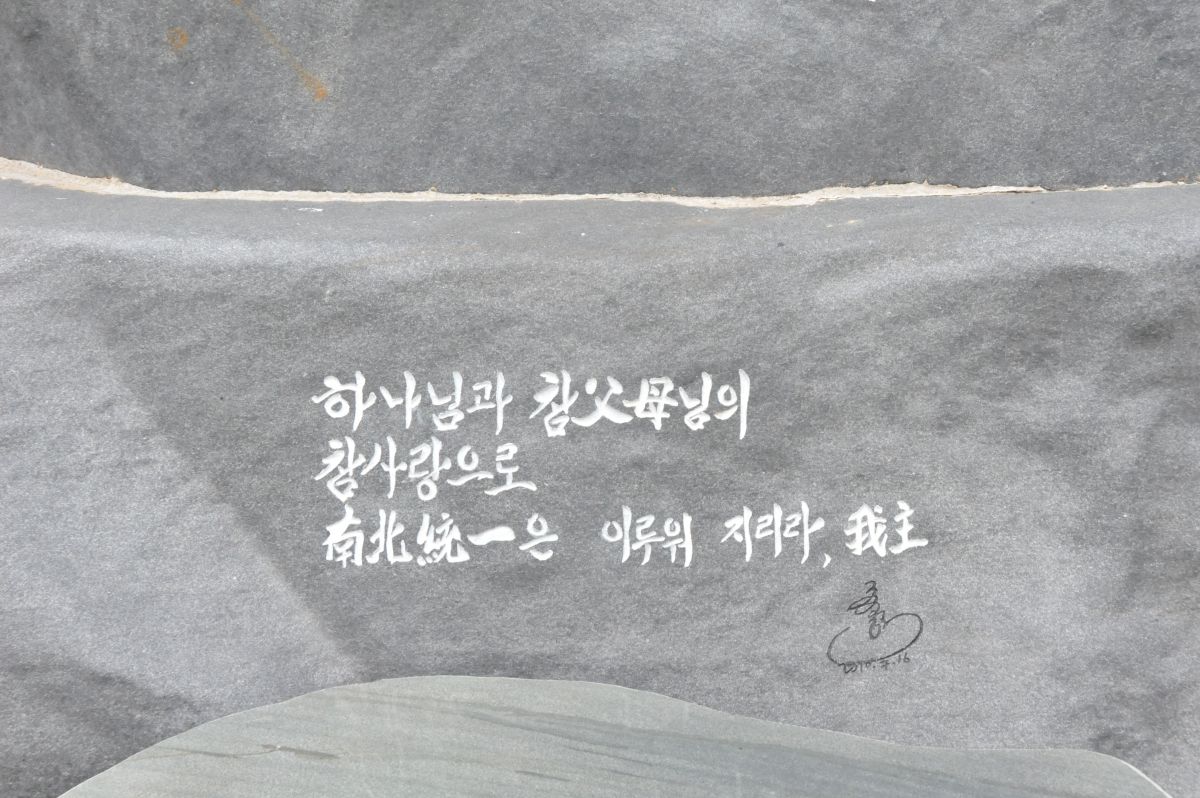 하나님과 참父母님의
참사랑으로
南北統一은 이루워 지리라, 我主